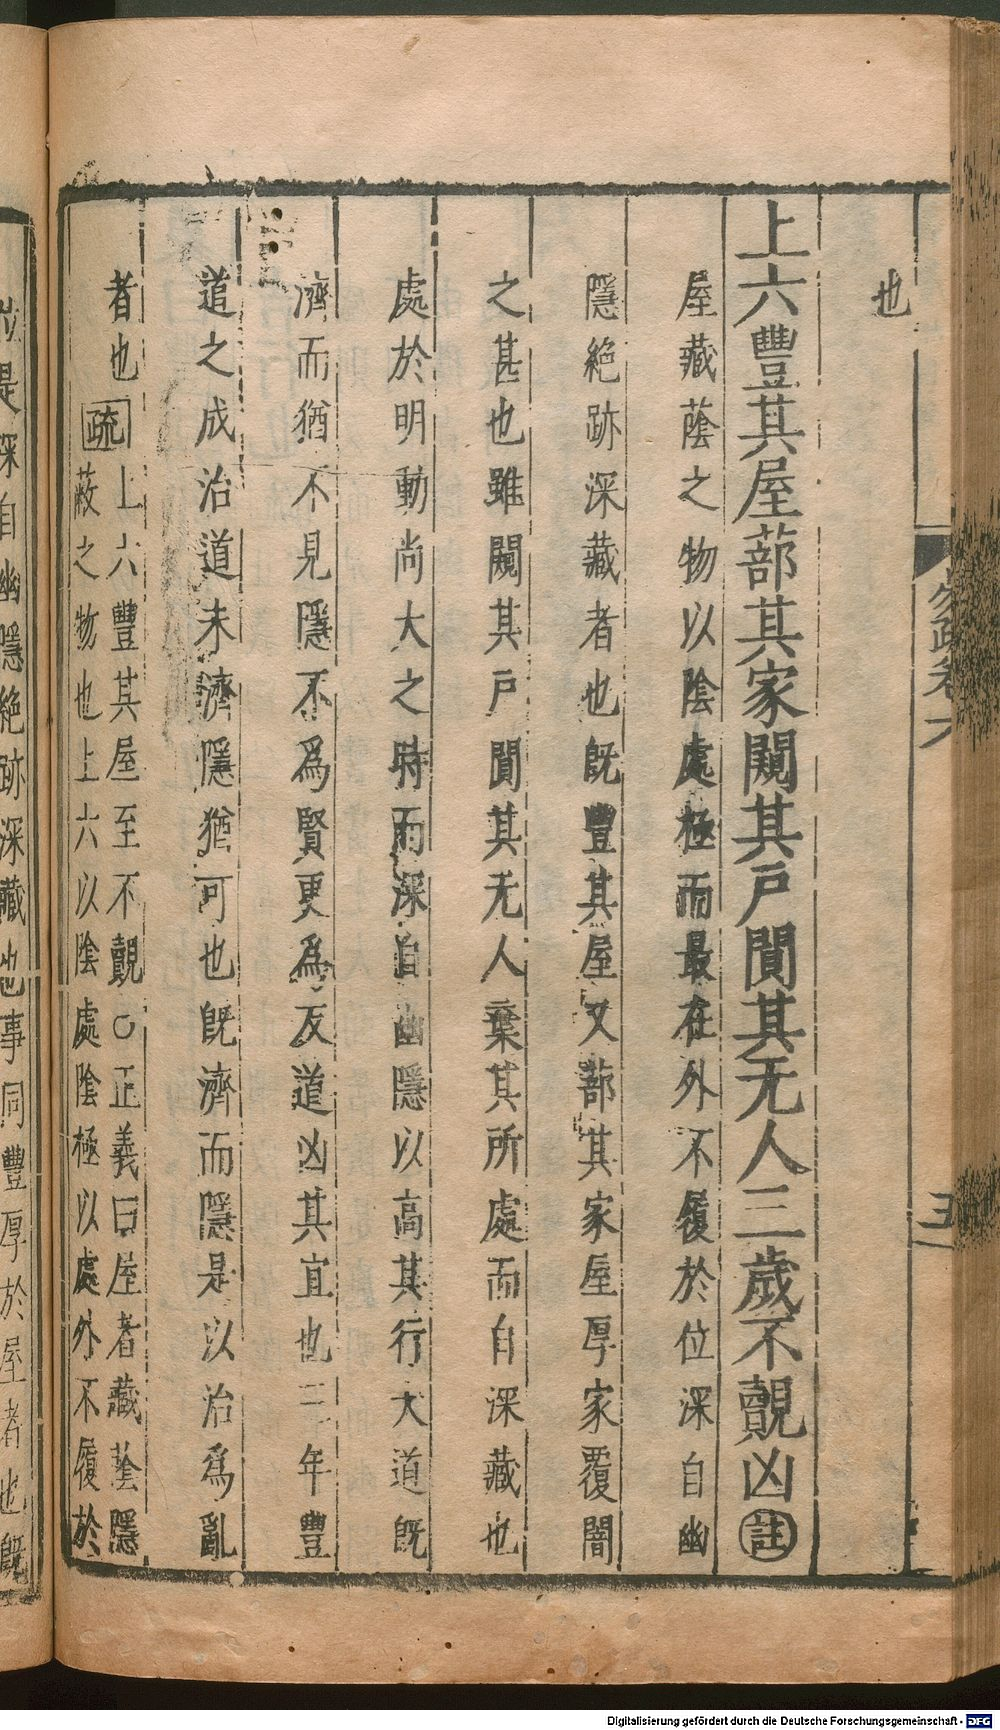 也
上六豐其屋蔀其家闚其戶闃其无人三歲不覿凶註
屋藏蔭之物以陰處極而最在外不履於位深自幽
隱絶跡深藏者也旣豐其屋又蔀其家屋厚家覆闇
之甚也雖闚其戶闃其无人棄其所處而自深藏也
處於明動尚大之時而深自幽隱以高其行大道旣
濟而猶不見隱不爲賢更爲反道凶其宜也三年豐
道之成治道未濟隱猶可也旣濟而隱是以治爲亂
者也疏
上六豐其屋至不覿○正義曰屋者藏蔭隱
蔽之物也上六以陰處陰極以處外不履於
位是深自幽隱絶跡深藏也事同豐厚於屋者也旣
五
Digitalisierung gefördert durch die Deutsche Forschungsgemeinschaft - DFG